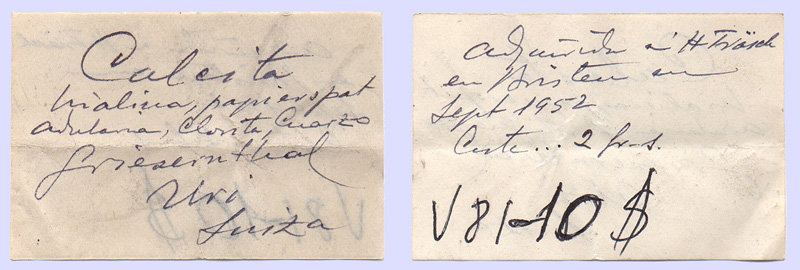 Calcita
hialina, papierspat
adularia, Clorita, Cuarzo
Griesernthal
Uri
Suiza
adquirida a H Frösch
en Bristen en
Sept 1952
Coste... 2 fr-s.
V81-10 $